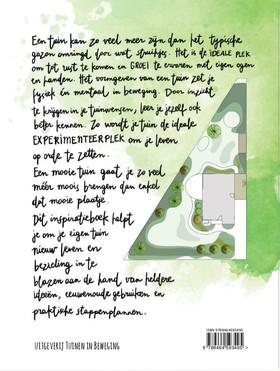 Een tuin kan zo veel meer zijn dan het typische
gazon omringd door wat struikjes. Het is de IDEALE PLEK
om tot rust te komen en GROEI te ervaren met eigen ogen
en handen. Het vormgeven van een tuin zet je
fysiek én mentaal in beweging. Door inzicht
te krijgen in je tuinwensen, leer je jezelf ook
beter kennen. Zo wordt je tuin de ideale
EXPERIMENTEERPLEK om je leven
op orde te zetten.
Een mooie tuin gaat je zo veel
méér moois brengen dan enkel
dat mooie plaatje.
Dit inspiratieboek helpt
je om je eigen tuin
nieuw leven en
bezieling in te
blazen aan de hand van heldere
ideeën, eeuwenoude gebruiken en
praktische stappenplannen.
UITGEVERIJ TUINEN IN BEWEGING